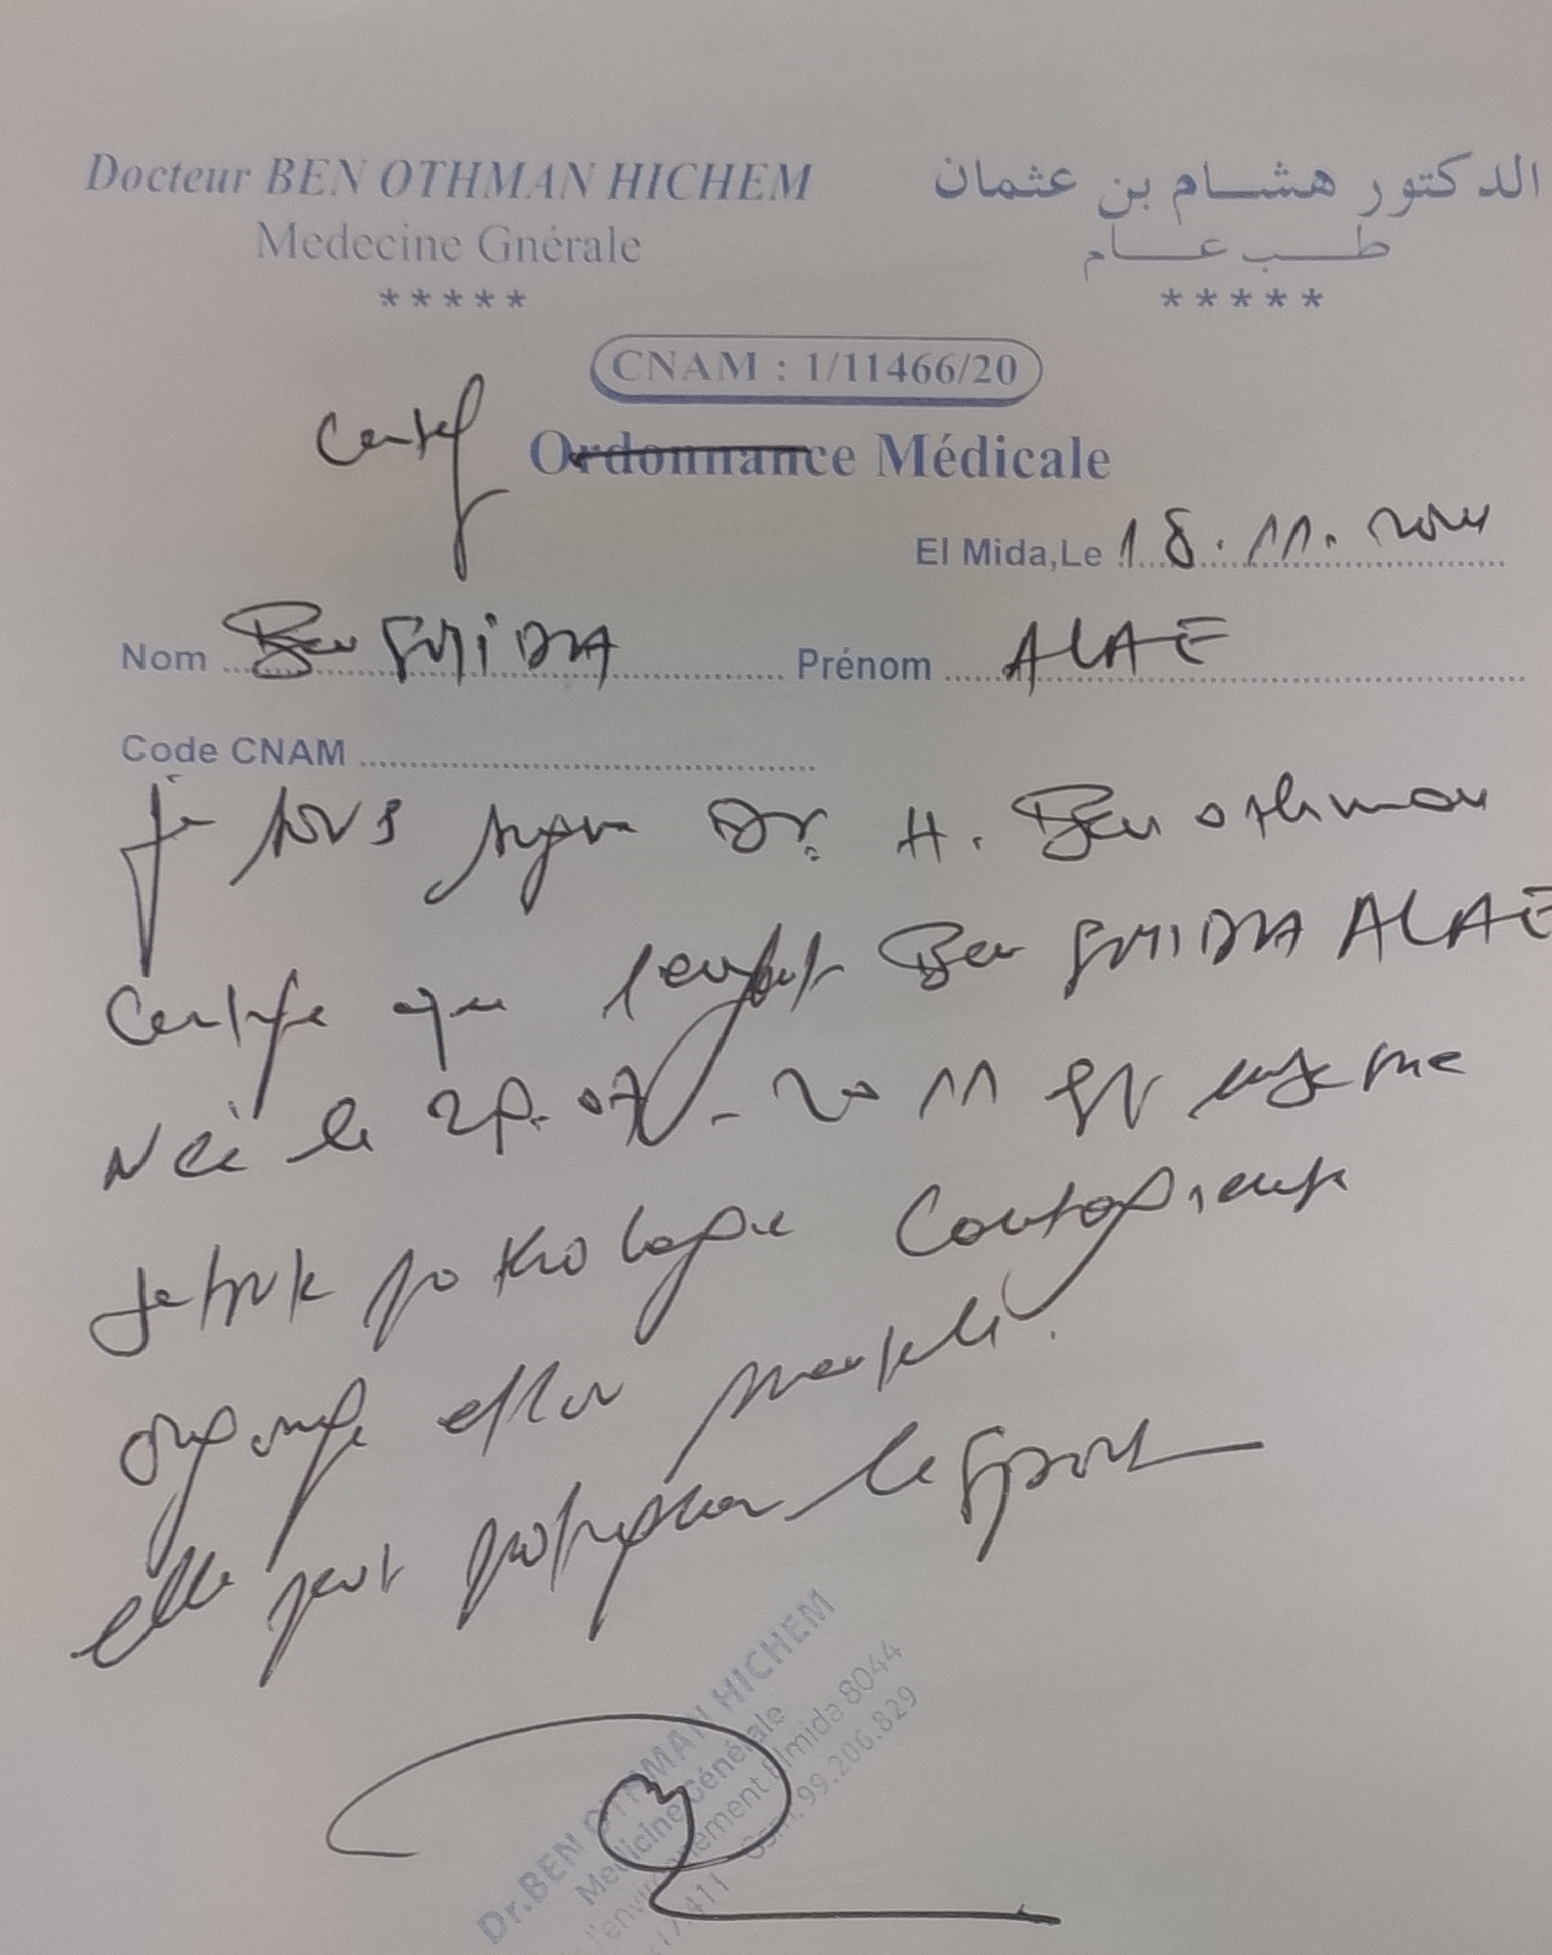 Docteur BEN OTHMAN HICHEM
الدكتور هشام بن عثمان
Medecine Gnérale
طب عام
*****
*****
CNAM : 1/11466/20
Certif Ordonnance Médicale
El Mida,Le 18.11.2024
Nom Ben SMIDA Prénom ALAE
Code CNAM
je sous signe Dr. H. Ben othman
Certifie que l'enfant Ben SMIDA ALAE
Née le 28-07-2011 est indemne
de toute pathologie Contagieuse
organique et/ou mentale.
elle peut pratiquer le sport
Dr.BEN OTHMAN HICHEM
Medicine Générale
l'environnement Elmida 8044
411 Gsm: 99.206.829